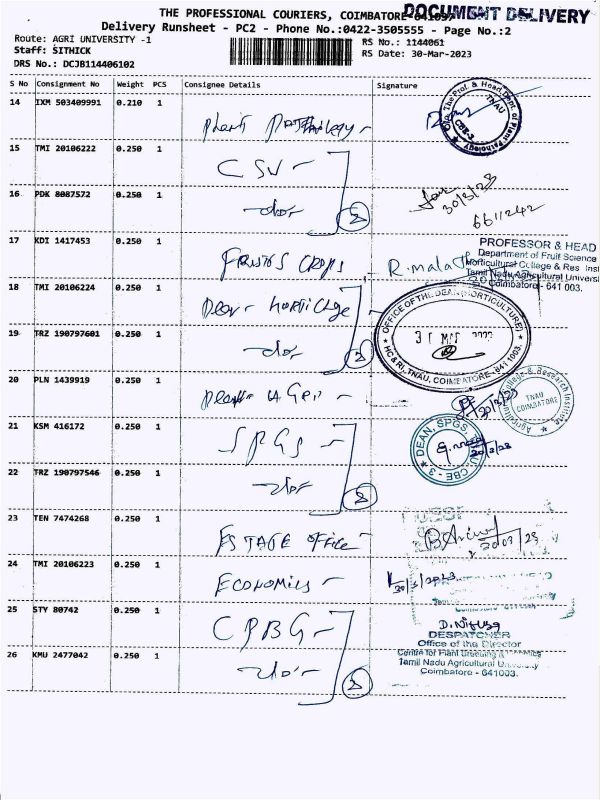 THE PROFESSIONAL COURIERS, COIMBATORE-641037
DOCUMENT DELIVERY
Delivery Runsheet - PC2 - Phone No.:0422-3505555 - Page No.:2
Route: AGRI UNIVERSITY -1
RS No.: 1144061
Staff: SITHICK
RS Date: 30-Mar-2023
DRS No.: DCJB114406102
S No Consignment No Weight PCS Consignee Details Signature
14 IXM 503409991 0.210 1
Plant Pathology -
The Prof. & Head Dept. of Plant Pathology
TNAU
CBE-3
15 TMI 20106222 0.250 1
CSW -
16 PDK 8087572 0.250 1
-do- 2
30/3/23
6611242
17 KDI 1417453 0.250 1
Fruits Crops -
R.mala
PROFESSOR & HEAD
Department of Fruit Science
Horticultural College & Res Inst
Tamil Nadu Agricultural Universi
Coimbatore - 641 003.
18 TMI 20106224 0.250 1
Dean - Horticlge
OFFICE OF THE DEAN (HORTICULTURE)
HC & RI, TNAU, COIMBATORE - 641 003.
19 TRZ 190797601 0.250 1
-do- 2
20 PLN 1439919 0.250 1
Dean Agri -
30/3/23
Agricultural College & Research Institute
TNAU
COIMBATORE
21 KSM 416172 0.250 1
SPGS -
DEAN, SPGS, TNAU, CBE - 3
30/3/23
22 TRZ 190797546 0.250 1
-do- 2
23 TEN 7474268 0.250 1
Estate Office -
30/03/23
24 TMI 20106223 0.250 1
Economics -
30/3/2023
25 STY 80742 0.250 1
CPBG -
DESPATCHER
Office of the Director
Centre for Plant Breeding & Genetics
Tamil Nadu Agricultural University
Coimbatore - 641003.
26 KMU 2477042 0.250 1
-do- 2